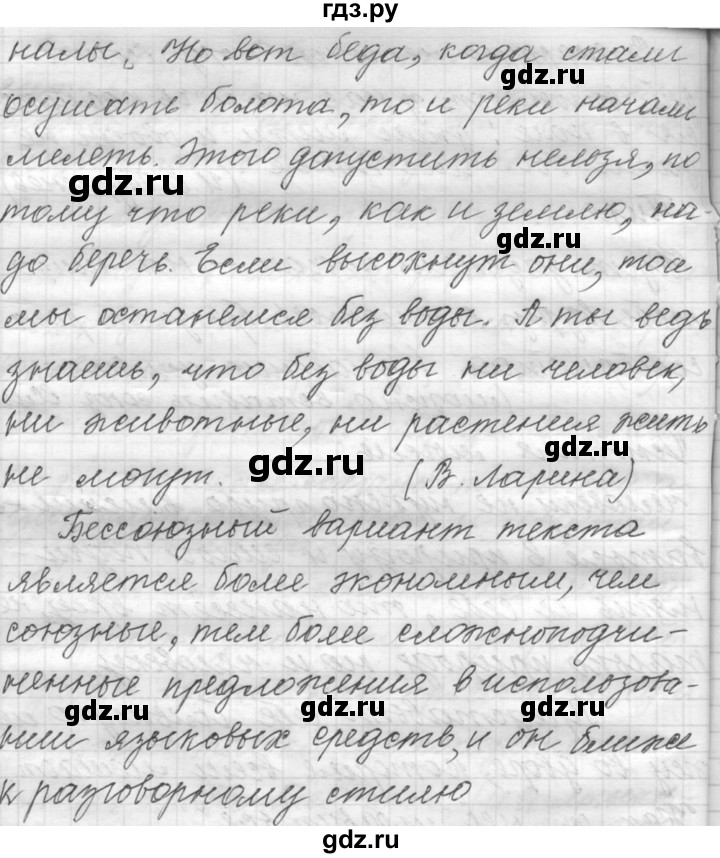 гдз.ру
налы. Но вот беда, когда стали
gdz.ru
осушать болота, то и реки начали
мелеть. Этого допустить нельзя, по
gdz.ru
тому что реки, как и землю, на-
gdz.ru
до беречь. Если высохнут они, то и
мы останемся без воды. А ты ведь
знаешь, что без воды ни человек,
ни животные, ни растения жить
gdz.ru
не могут. gdz.ru (В. Ларина)
Бессоюзный вариант текста
является более экономным, чем
союзные, тем более сложноподчи-
ненные предложения в использова-
gdz.ru gdz.ru gdz.ru
нии языковых средств, и он ближе
к разговорному стилю
gdz.ru